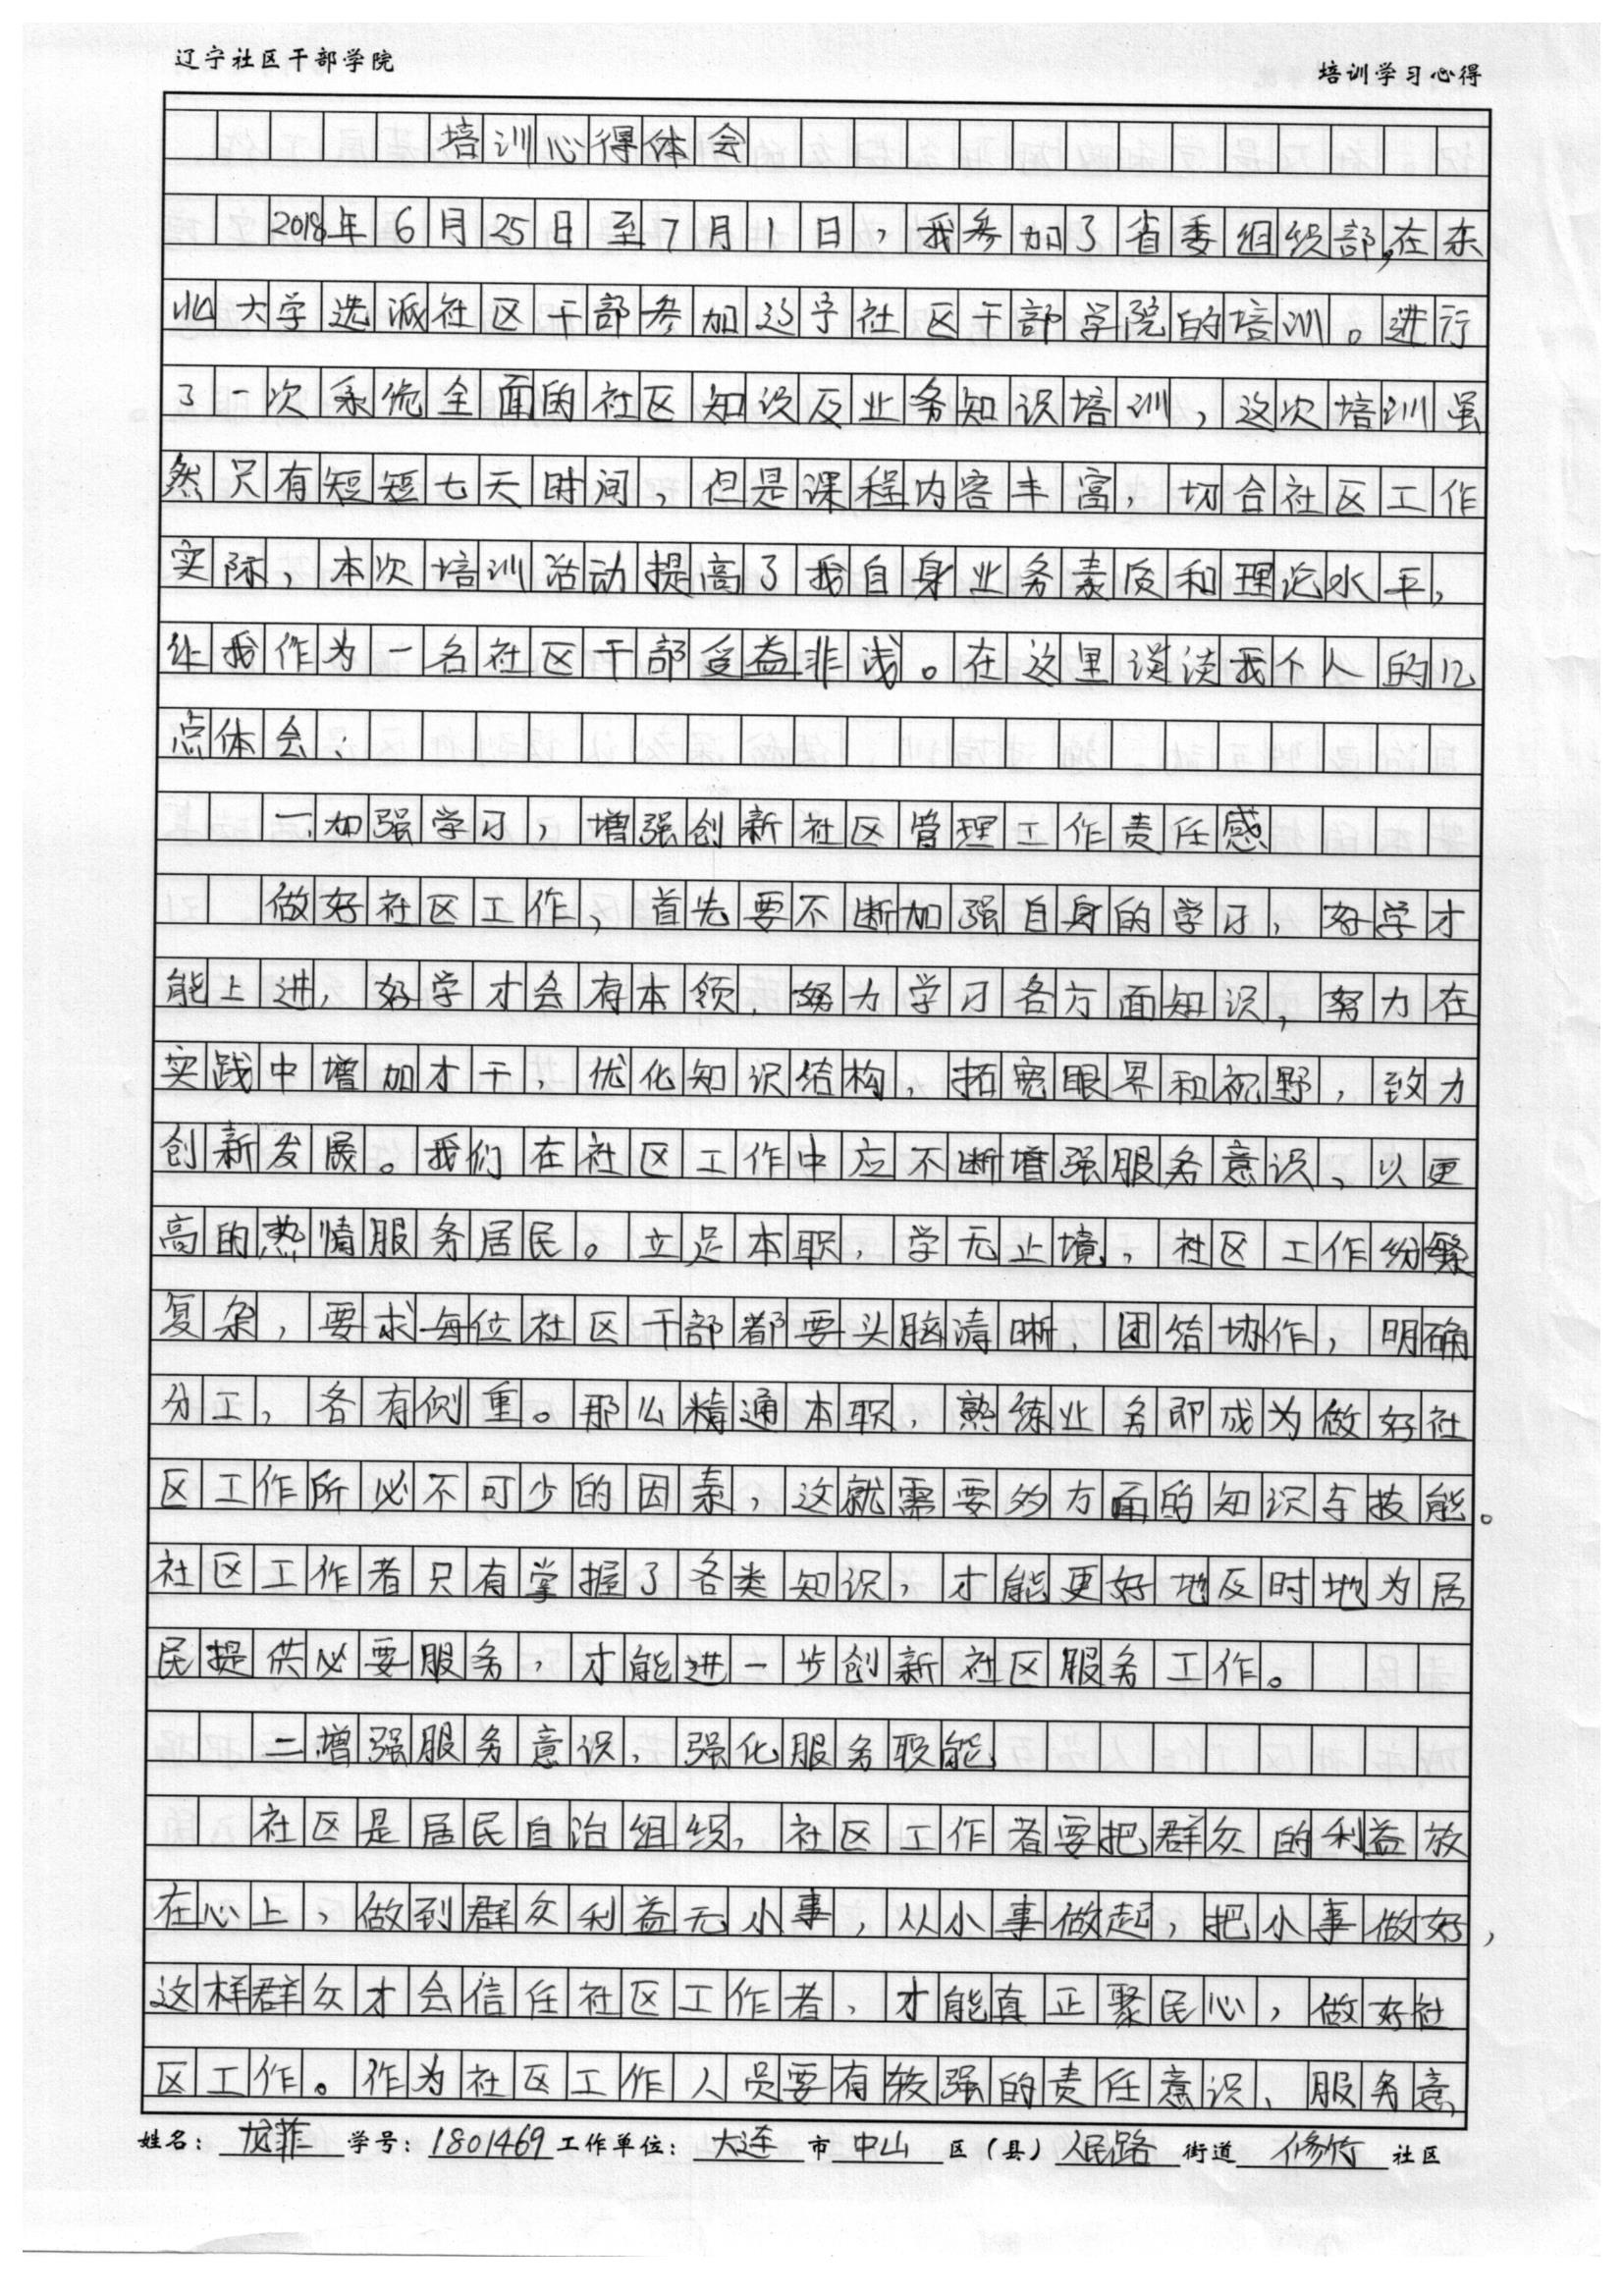 辽宁社区干部学院
培训学习心得
培训心得体会
2018年6月25日至7月1日，我参加了省委组织部，在东
北大学选派社区干部参加辽宁社区干部学院的培训。进行
了一次系统全面的社区知识及业务知识培训，这次培训虽
然只有短短七天时间，但是课程内容丰富，切合社区工作
实际，本次培训活动提高了我自身业务素质和理论水平，
让我作为一名社区干部受益非浅。在这里谈谈我个人的几
点体会：
一.加强学习，增强创新社区管理工作责任感
做好社区工作，首先要不断加强自身的学习，好学才
能上进，好学才会有本领，努力学习各方面知识，努力在
实践中增加才干，优化知识结构，拓宽眼界和视野，致力
创新发展。我们在社区工作中应不断增强服务意识、以更
高的热情服务居民。立足本职，学无止境，社区工作纷繁
复杂，要求每位社区干部都要头脑清晰，团结协作，明确
分工，各有侧重。那么精通本职，熟练业务即成为做好社
区工作所必不可少的因素，这就需要多方面的知识与技能。
社区工作者只有掌握了各类知识，才能更好地及时地为居
民提供必要服务，才能进一步创新社区服务工作。
二增强服务意识、强化服务职能
社区是居民自治组织，社区工作者要把群众的利益放
在心上，做到群众利益无小事，从小事做起，把小事做好，
这样群众才会信任社区工作者，才能真正聚民心，做好社
区工作。作为社区工作人员要有较强的责任意识、服务意
姓名：龙菲 学号：1801469 工作单位：大连市中山区（县）人民路街道修竹社区